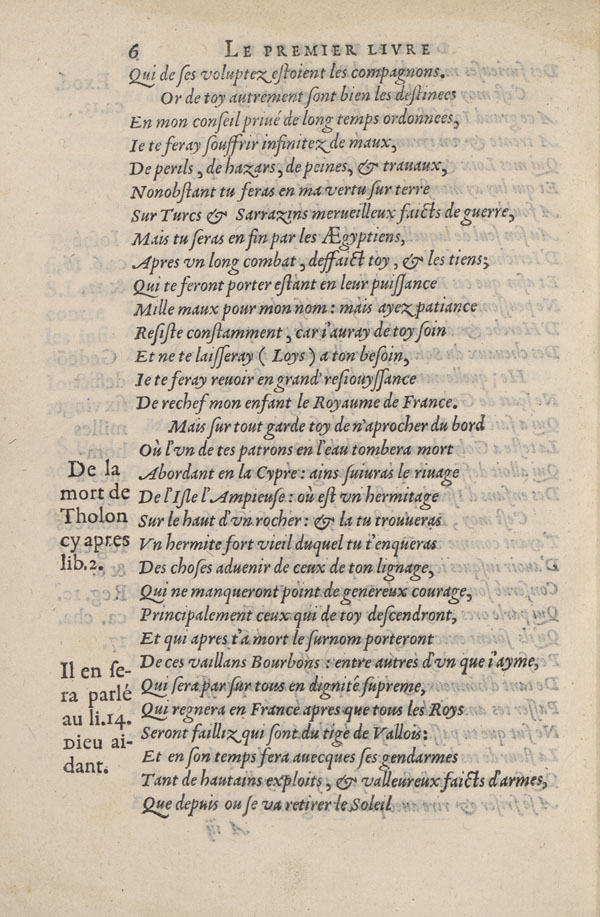 6 LE PREMIER LIVRE
Qui de ses voluptez estoient les compagnons.
Or de toy autrement sont bien les destinees
En mon conseil privé de long temps ordonnees,
Ie te feray souffrir infinitez de maux,
De perils, de hazars, de peines, & travaux,
Nonobstant tu feras en ma vertu sur terre
Sur Turcs & Sarrazins merveilleux faicts de guerre,
Mais tu seras en fin par les Ægyptiens,
Apres vn long combat, deffaict toy, & les tiens;
Qui te feront porter estant en leur puissance
Mille maux pour mon nom: mais ayez patiance
Resiste constamment, car i'auray de toy soin
Et ne te laisseray (Loys) a ton besoin,
Ie te feray revoir en grand' resiouyssance
De rechef mon enfant le Royaume de France.
Mais sur tout garde toy de n'aprocher du bord
Où l'vn de tes patrons en l'eau tombera mort
Abordant en la Cypre: ains suiuras le rivage
De l'Isle l'Ampieuse: où est vn hermitage
Sur le haut d'vn rocher: & la tu trouueras
Vn hermite fort vieil duquel tu t'enqueras
Des choses aduenir de ceux de ton lignage,
Qui ne manqueront point de genereux courage,
Principalement ceux qui de toy descendront,
Et qui apres t'a mort le surnom porteront
De ces vaillans Bourbons: entre autres d'vn que i'ayme,
Qui sera par sur tous en dignité supreme,
Qui regnera en France apres que tous les Roys
Seront failliz qui sont du tige de Vallois:
Et en son temps fera auecques ses gendarmes
Tant de hautains exploits, & valleureux faicts d'armes,
Que depuis ou se va retirer le Soleil
De la
mort de
Tholon
cy apres
lib.2.
Il en se-
ra parlé
au li.14.
Dieu ai-
dant.